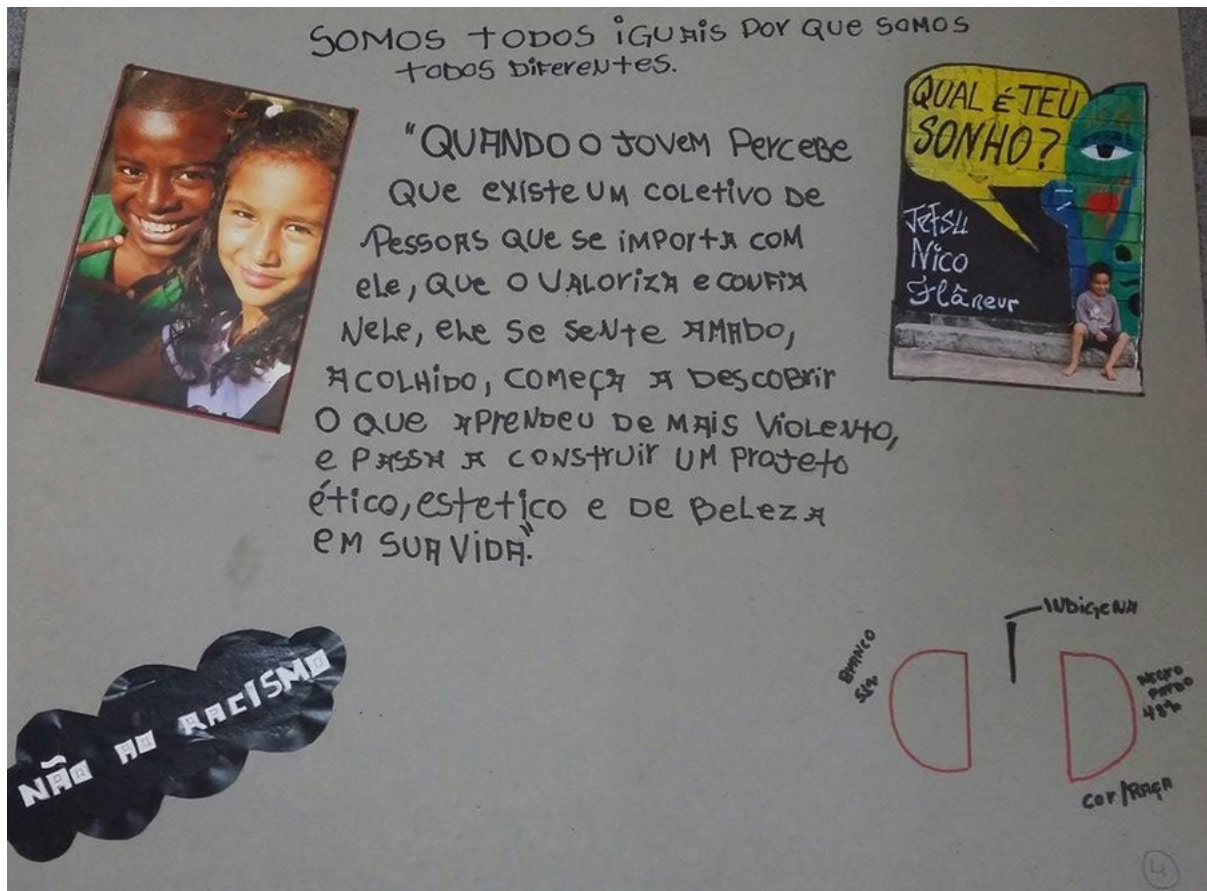 SOMOS TODOS iGUAis POr QUE SOMOS
TODOS DiFereNtes.
"QUANDO O JOVEM PerCeBe
QUe existe UM COLetivo De
PessoAs QUe se iMPOrtA COM
eLe, QUe O VALOrizA e CONFiA
NeLe, eLe Se SeNte AMADO,
ACOLHiDO, COMeçA A DesCOBrir
O QUe APreNDeU De MAis ViOLeNtO,
e PASSA A CONStrUir UM PrOJetO
éticO, estetico e De BeLezA
eM SUA ViDA."
QUAL É TEU
SONHO?
Nico
Flâneur
NÃO AO RACISMO
iNDigeNA
BrANCO
NeGrO
PArDO
48%
COr/RAçA
4